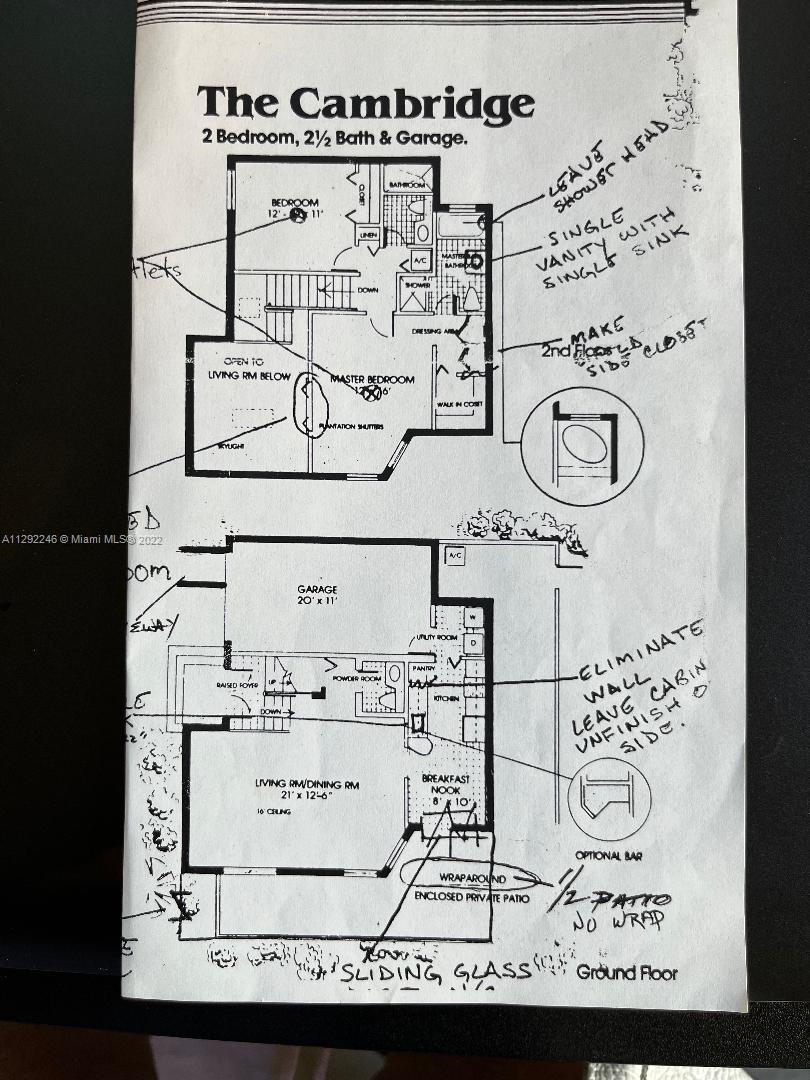 The Cambridge
2 Bedroom, 2½ Bath & Garage.
BATHROOM
CLOSET
BEDROOM
LINEN
LEAVE
SHOWER HEAD
SINGLE
VANITY WITH
SINGLE SINK
A/C
MASTER
BATHROOM
SHOWER
DOWN
DRESSING AREA
MAKE
2nd Floor
SIDE CLOSET
OPEN TO
LIVING RM BELOW
MASTER BEDROOM
WALK IN CLOSET
PLANTATION SHUTTERS
SKYLIGHT
A11292246 © Miami MLS® 2022
A/C
GARAGE
20' x 11'
W
UTILITY ROOM
D
PANTRY
POWDER ROOM
UP
RAISED FOYER
KITCHEN
DOWN
ELIMINATE
WALL
LEAVE CABIN
UNFINISH
SIDE.
LIVING RM/DINING RM
21' x 12'-6"
16' CEILING
BREAKFAST
NOOK
8' x 10'
OPTIONAL BAR
WRAPAROUND
ENCLOSED PRIVATE PATIO
1/2 PATIO
NO WRAP
SLIDING GLASS
Ground Floor